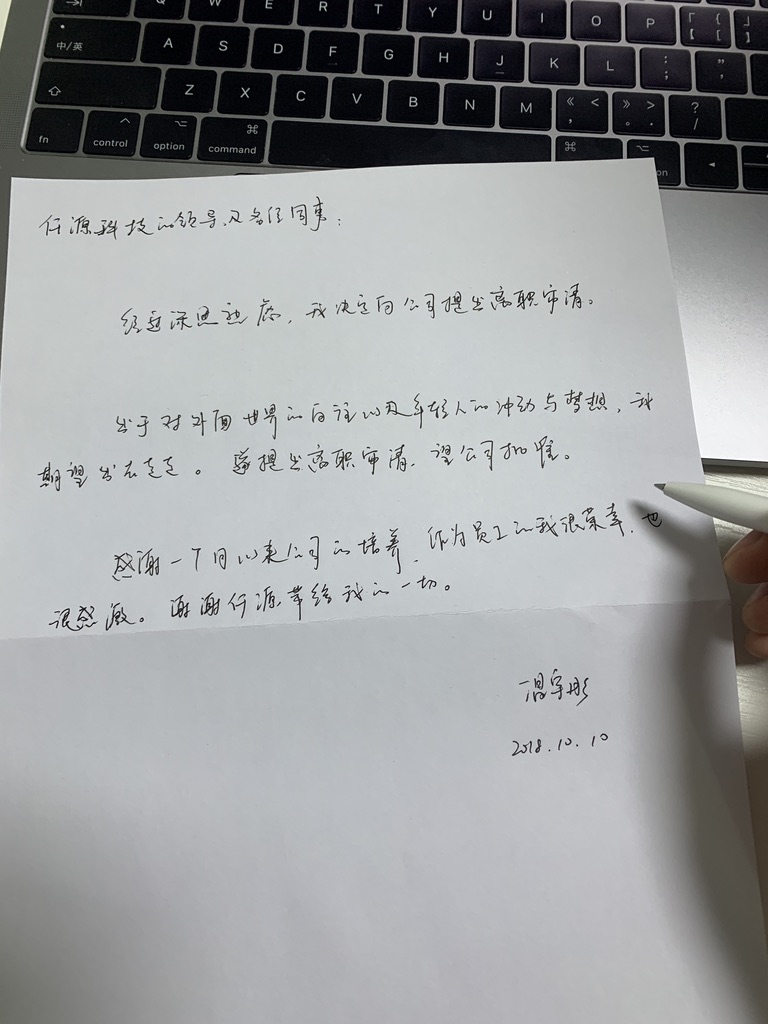 Q W E R T Y U I O P 「 { 【 [ 」 }
中/英 A S D F G H J K L : ; " ,
Z X C V B N M 《 < , 》 > 。 . ? /
fn control option ⌘ command ⌘ ⌥
仟源科技的领导及各位同事：
经过深思熟虑，我决定向公司提出离职申请。
出于对外面世界的向往以及年轻人的冲动与梦想，我
期望出去走走。 提出离职申请，望公司批准。
感谢一个月以来公司的培养，作为员工的我很荣幸，也
很感激。谢谢仟源带给我的一切。
温宇彤
2018.10.10